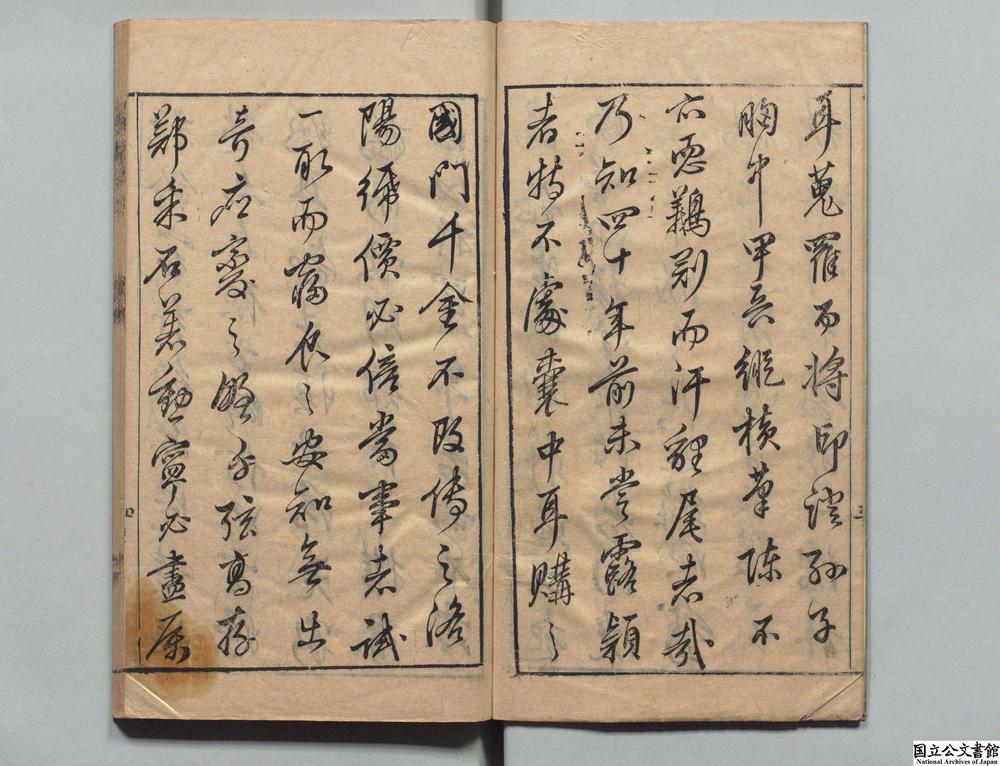 耳蒐羅而將印證孫子
胸中甲兵縱橫筆陳不
六
鷄刖而汗貂尾者哉
乃知四十年前未嘗露穎
者特不處囊中耳購之
國門千金不改傳之洛
陽紙價必倍當事者試
一取而寤食之安知無出
奇應變之弦高存
鄭乘石著勳寧必盡屬
三
四
国立公文書館
National Archives of Japan